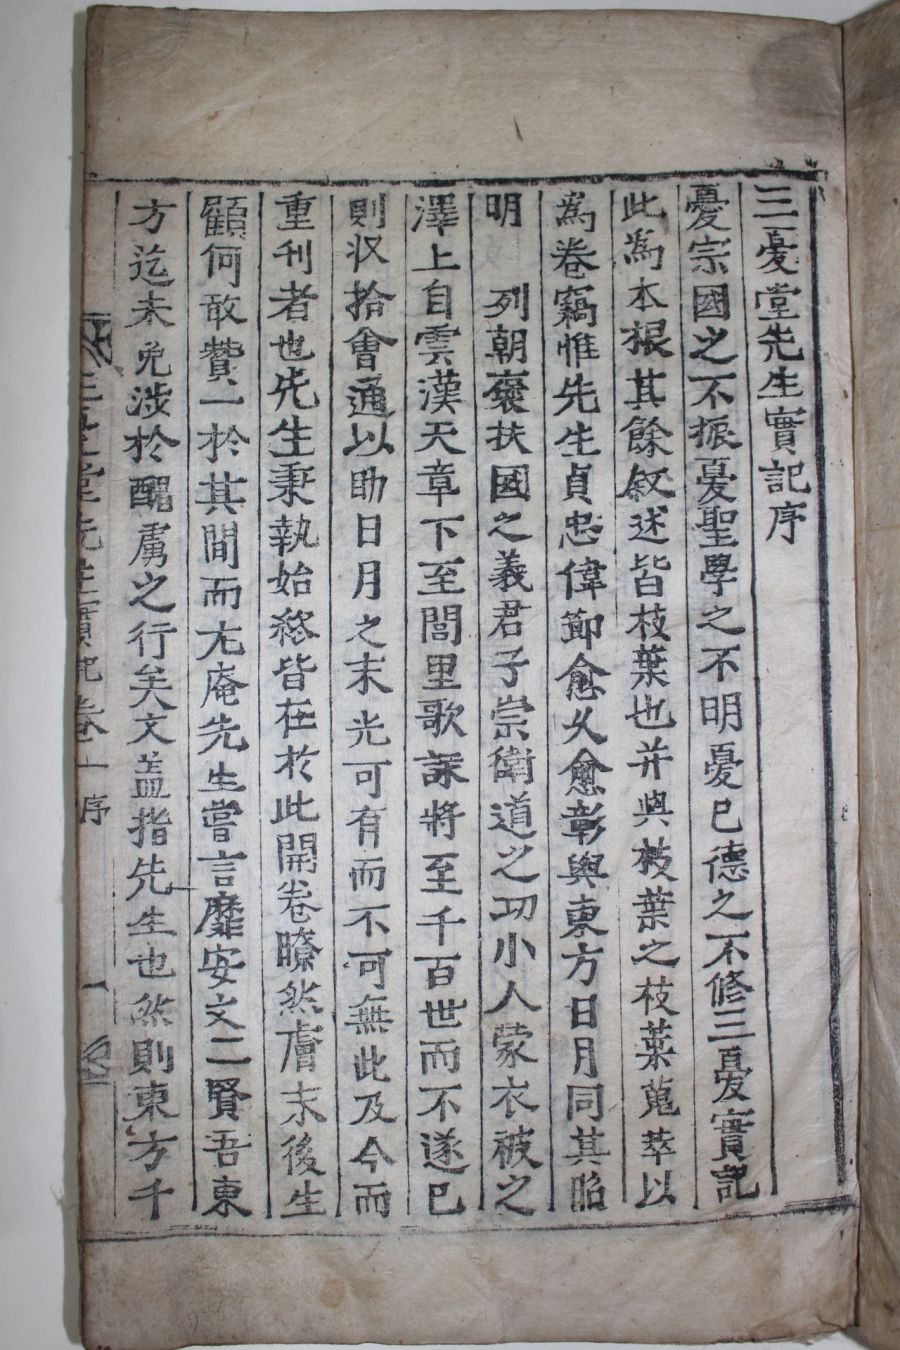 三憂堂先生實記序
憂宗國之不振憂聖學之不明憂已德之不修三憂實記
此爲本根其餘叙述皆枝葉也并與枝葉之枝葉蒐萃以
爲卷竊惟先生貞忠偉節愈久愈彰與東方日月同其昭
明　列朝褒扶國之義君子崇衛道之功小人蒙衣被之
澤上自雲漢天章下至閭里歌謠將至千百世而不遂已
則収拾會通以助日月之末光可有而不可無此及今而
重刊者也先生秉執始終皆在於此開卷瞭然膚末後生
顧何敢贊一於其間而尤庵先生嘗言靡安文二賢吾東
方迄未免涉於醜虜之行矣文盖指先生也然則東方千
三憂堂先生實記卷一序　一